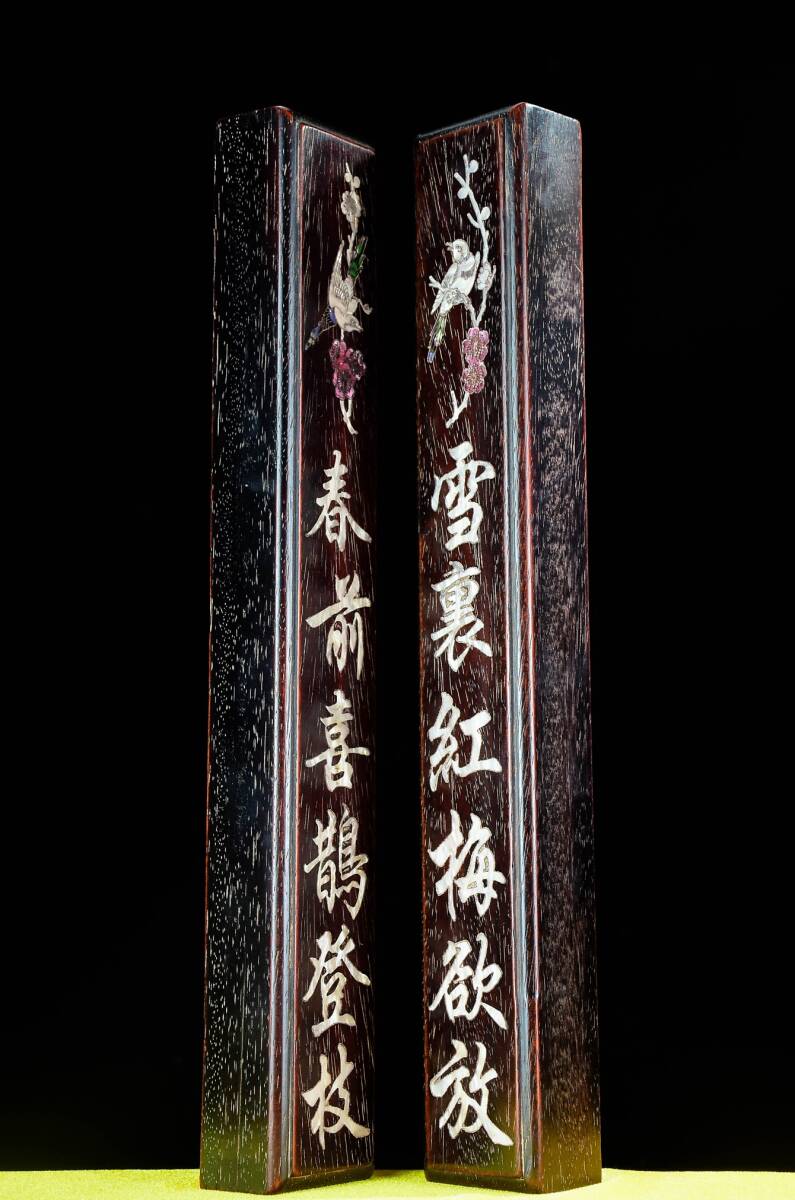 雪裏紅梅欲放
春前喜鵲登枝